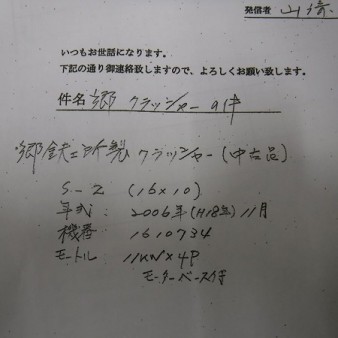 発信者 山崎
いつもお世話になります。
下記の通り御連絡致しますので、よろしくお願い致します。
件名 郷 クラッシャーの件
郷鉄工所製 クラッシャー(中古品)
S-2 (16×10)
年式: 2006年(H18年)11月
機番: 1610734
モートル: 11KW×4P
モーターベース付